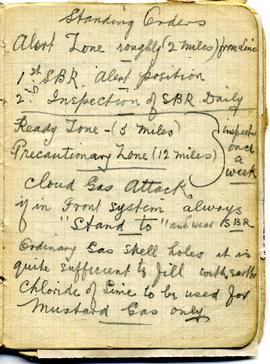 Standing Orders
Alert Zone roughly (2 miles) from Line
1st SBR. Alert Position
2nd Inspection of SBR Daily
Ready Zone - (5 miles)
Precautionary Zone (12 miles)
Inspection once a week
Cloud Gas Attack
if in Front system always
"Stand to" and wear SBR
Ordinary Gas shell holes it is
quite sufficient to fill with earth
Chloride of Lime to be used for
Mustard Gas only